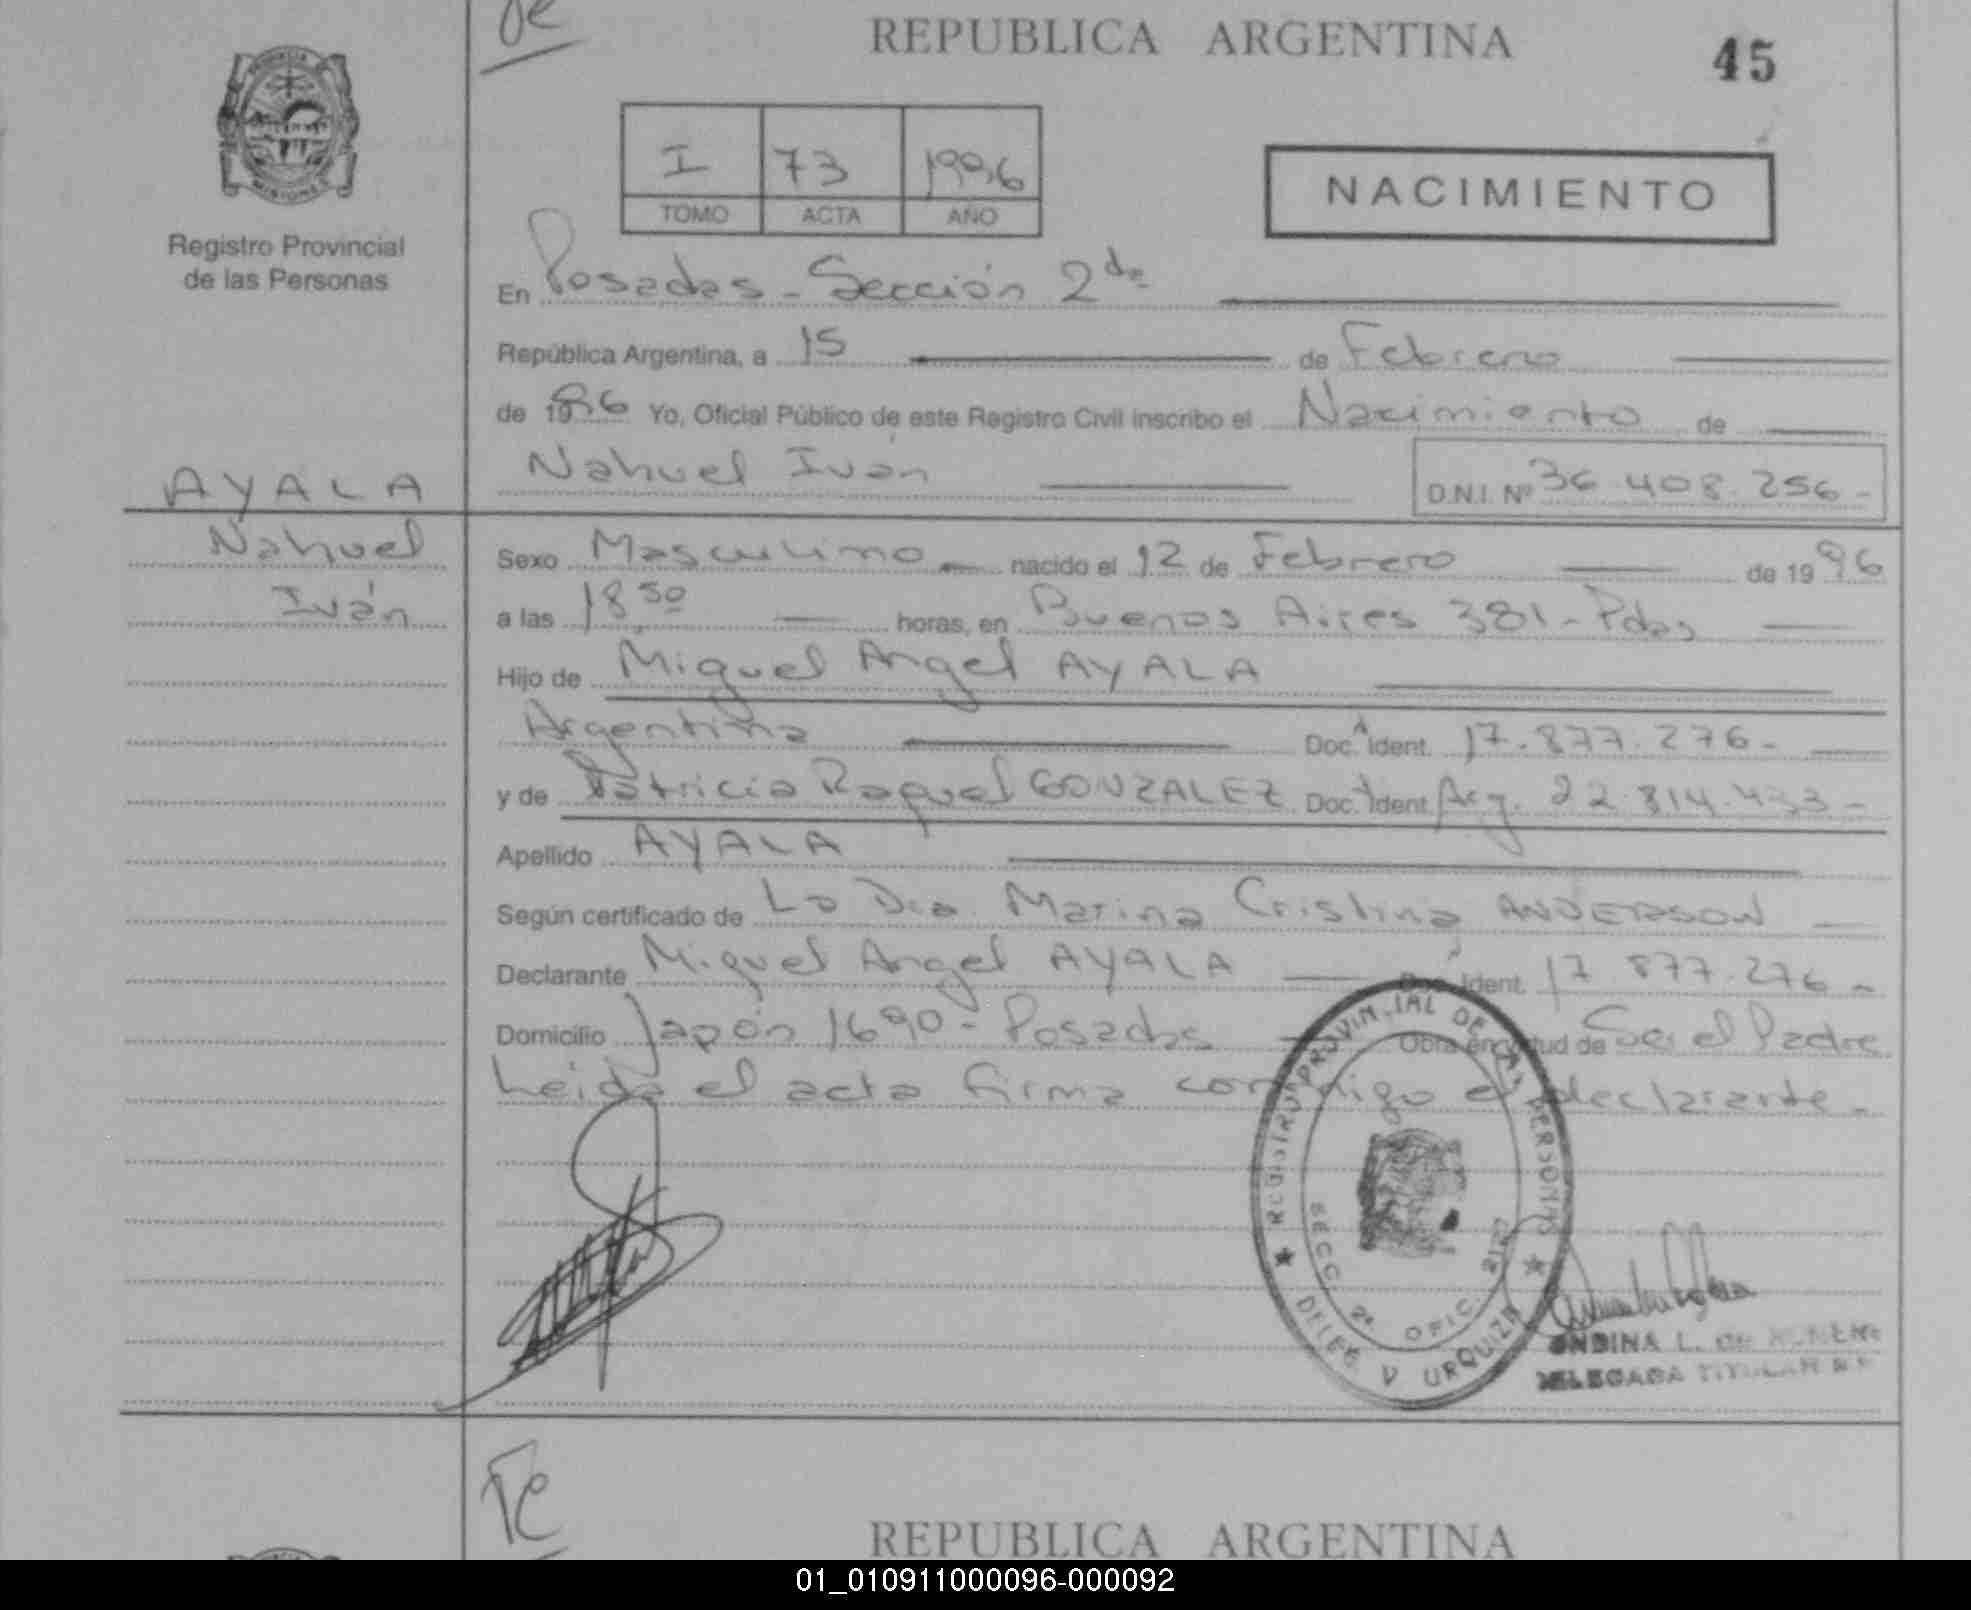 REPUBLICA ARGENTINA
45
MISIONES
Registro Provincial
de las Personas
I 73 1996
TOMO ACTA AÑO
NACIMIENTO
En Posadas - Sección 2da
República Argentina, a 15 de Febrero
de 1996 Yo, Oficial Público de este Registro Civil inscribo el Nacimiento de
AYALA
Nahuel Iván
D.N.I. Nº 36.408.256-
Nahuel
Iván
Sexo Masculino nacido el 12 de Febrero de 1996
a las 18 50 horas, en Buenos Aires 381 - Pdas
Hijo de Miguel Angel AYALA
Argentina Doc. Ident. 17.877.276-
y de Patricia Raquel GONZALEZ Doc. Ident. Arg. 22.814.433-
Apellido AYALA
Según certificado de La Dra. Marina Cristina ANDERSON
Declarante Miguel Angel AYALA Doc. Ident. 17.877.276-
Domicilio Japón 1690 - Posadas Obra en virtud de Ser el Padre
Leida el acta firma conmigo el declarante.-
REGISTRO PROVINCIAL DE LAS PERSONAS
SECC. 2ª OFIC.
DELEG V URQUIZA
ONDINA L. DE
DELEGADA TITULAR
REPUBLICA ARGENTINA
01_010911000096-000092